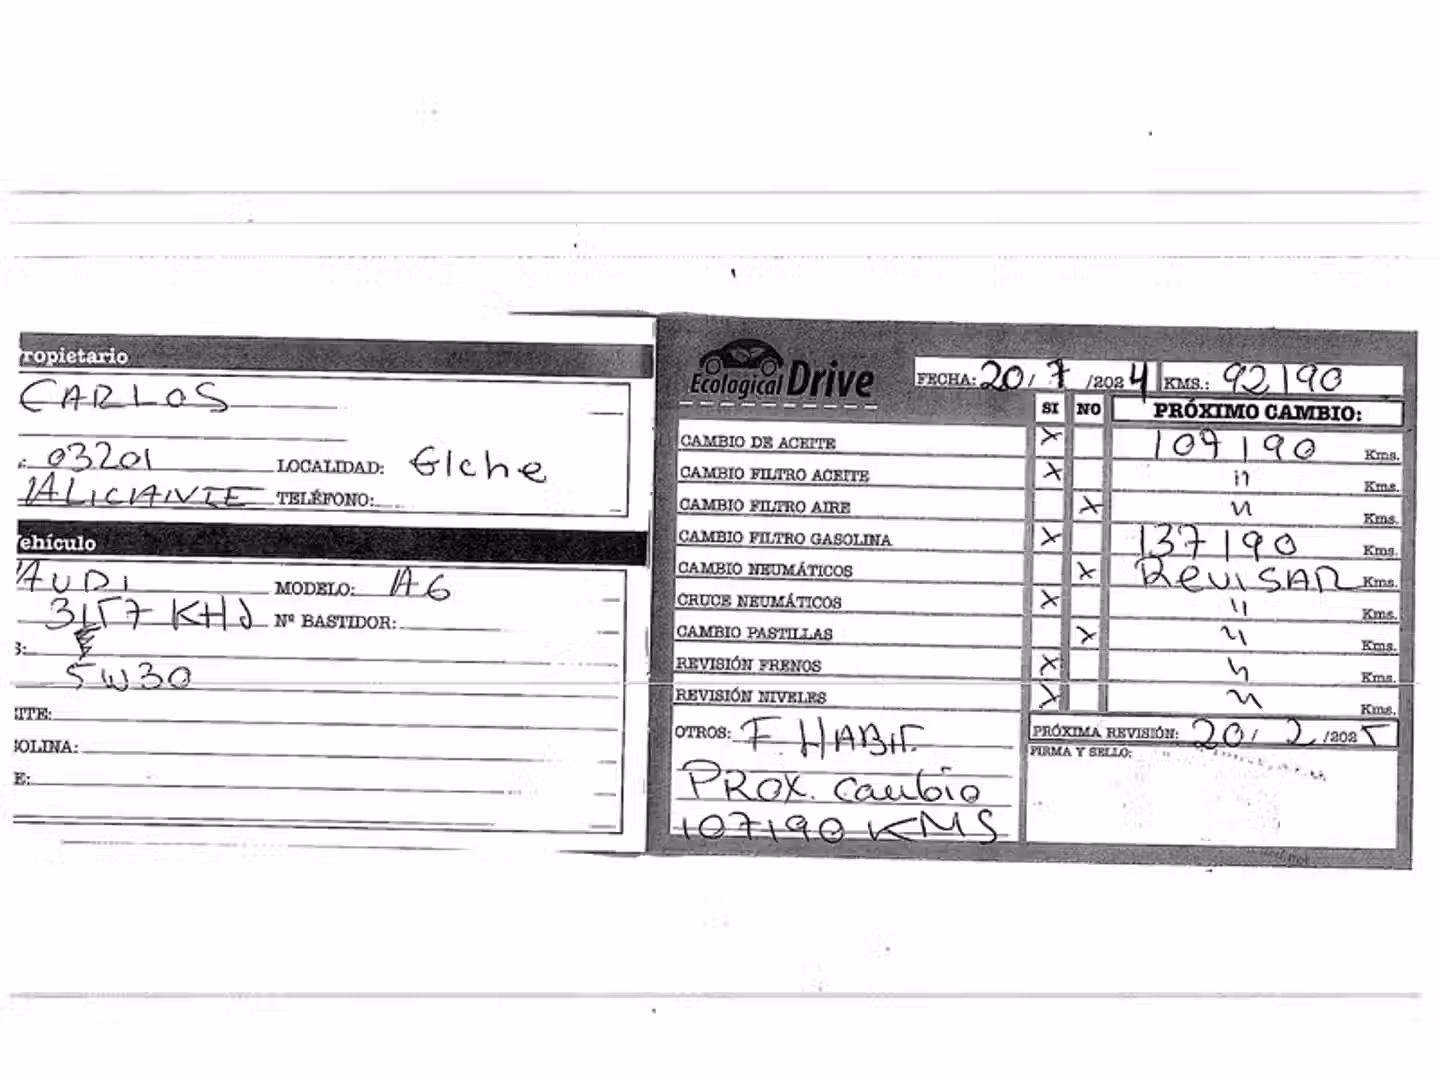 ropietario
CARLOS
03201 LOCALIDAD: Elche
ALICANTE TELÉFONO:
ehículo
AUDI MODELO: A6
3157 KHJ Nº BASTIDOR:
S:
5W30
ITE:
OLINA:
E:
Ecological Drive
FECHA: 20/7/2024 KMS.: 92190
SI NO PRÓXIMO CAMBIO:
CAMBIO DE ACEITE X 107190 Kms.
CAMBIO FILTRO ACEITE X " Kms.
CAMBIO FILTRO AIRE X " Kms.
CAMBIO FILTRO GASOLINA X 137190 Kms.
CAMBIO NEUMÁTICOS X REVISAR Kms.
CRUCE NEUMÁTICOS X " Kms.
CAMBIO PASTILLAS X " Kms.
REVISIÓN FRENOS X " Kms.
REVISIÓN NIVELES X " Kms.
OTROS: F. HABIT.
PROX. cambio
107190 KMS
PRÓXIMA REVISIÓN: 20/2/2025
FIRMA Y SELLO: